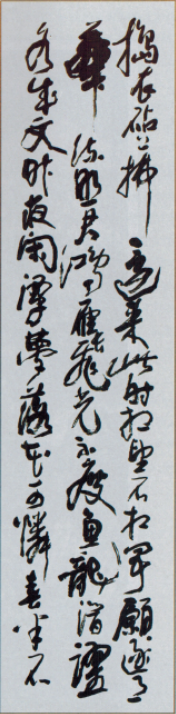 搗衣砧上拂還来此時相望不相聞願逐月
華流照君鴻雁長飛光不度魚龍潛躍
水成文昨夜閑潭夢落花可憐春半不